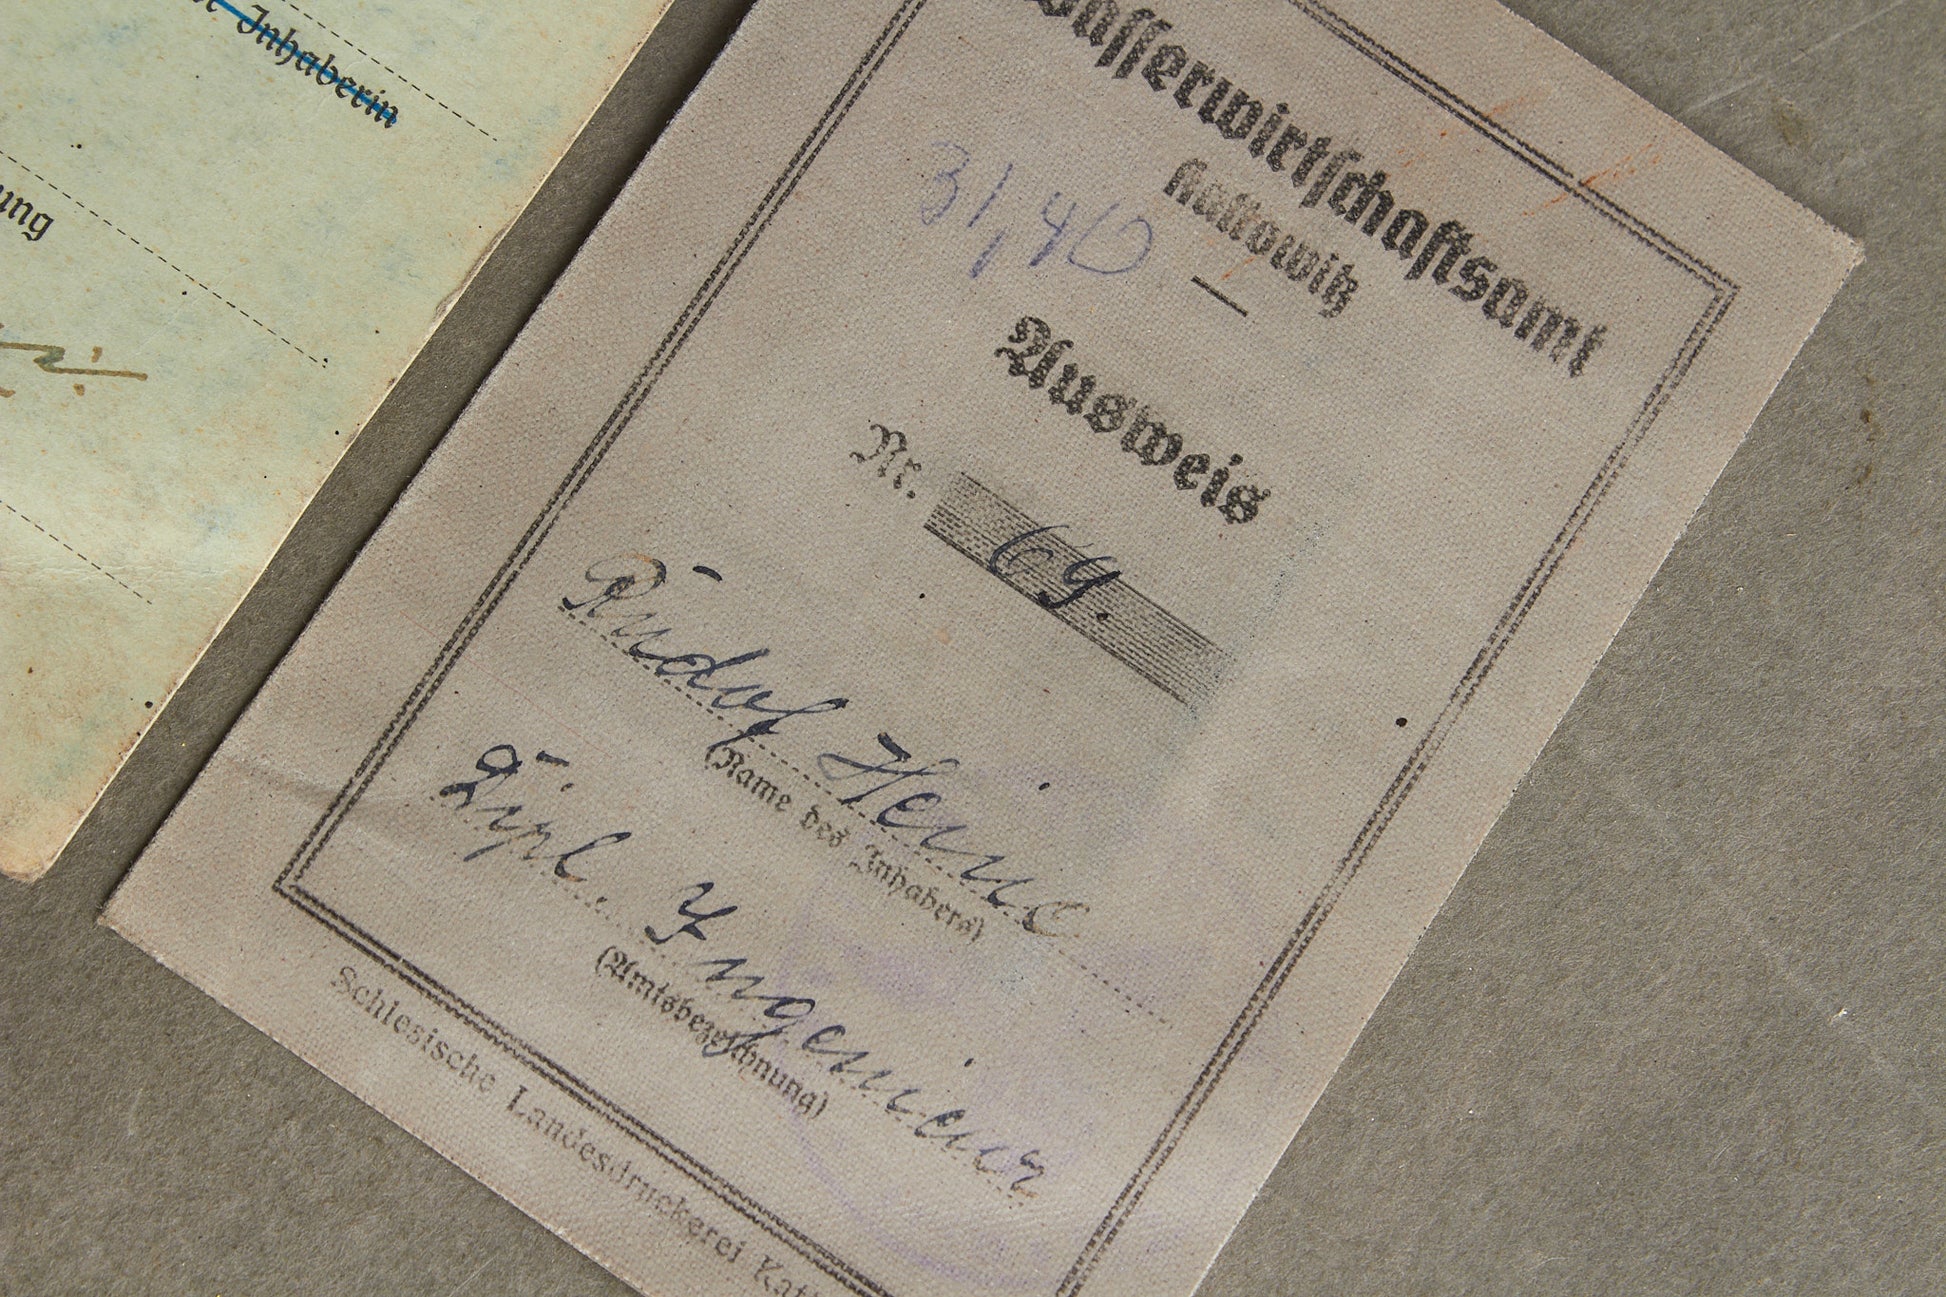 Inhaberin
ung
Wasserwirtschaftsamt
Kattowitz
31,40
Ausweis
Nr. 69.
Rudolf Heinz
(Name des Inhabers)
Dipl. Ingenieur
(Amtsbezeichnung)
Schlesische Landesdruckerei Katt